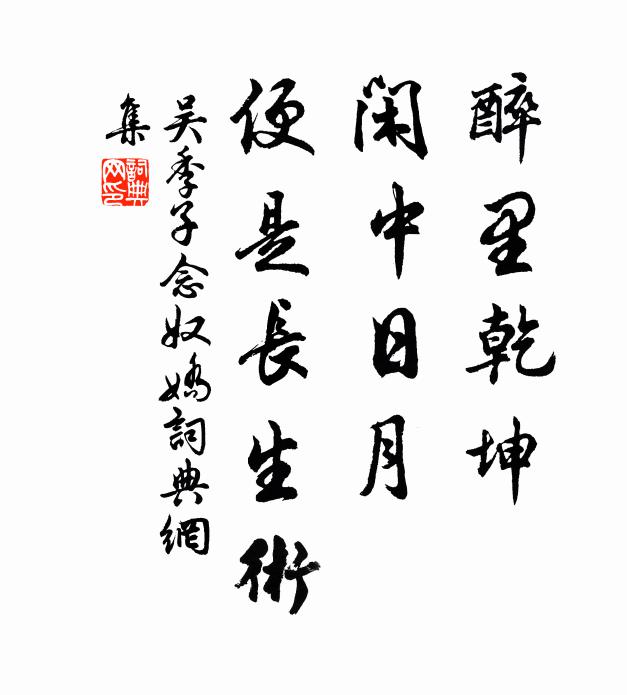 醉里乾坤
閑中日月
便是長生術
吴季子念奴嬌詞典網
集
詞典
网印